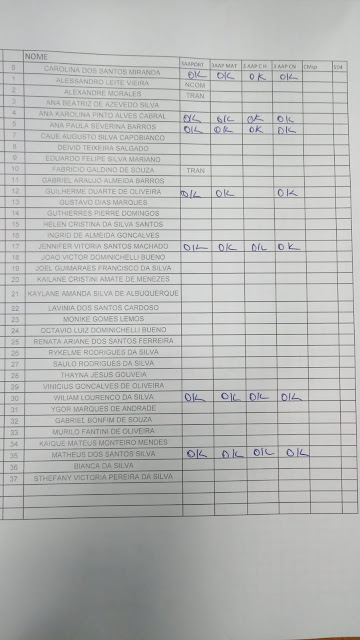 NOME 3AAPORT 3AAP MAT 3 AAP C H 3 AAP CN CMsp SD4
0 CAROLINA DOS SANTOS MIRANDA OK OK OK OK
1 ALESSANDRO LEITE VIEIRA NCOM
2 ALEXANDRE MORALES TRAN
3 ANA BEATRIZ DE AZEVEDO SILVA
4 ANA KAROLINA PINTO ALVES CABRAL OK OK OK OK
5 ANA PAULA SEVERINA BARROS OK OK OK OK
7 CAUE AUGUSTO SILVA CAPOBIANCO
8 DEIVID TEIXEIRA SALGADO
9 EDUARDO FELIPE SILVA MARIANO
10 FABRICIO GALDINO DE SOUZA TRAN
11 GABRIEL ARAUJO ALMEIDA BARROS
12 GUILHERME DUARTE DE OLIVEIRA OK OK OK
13 GUSTAVO DIAS MARQUES
14 GUTHIERRES PIERRE DOMINGOS
15 HELEN CRISTINA DA SILVA SANTOS
16 INGRID DE ALMEIDA GONCALVES
17 JENNIFER VITORIA SANTOS MACHADO OK OK OK OK
18 JOAO VICTOR DOMINICHELLI BUENO
19 JOEL GUIMARAES FRANCISCO DA SILVA
20 KAILANE CRISTINI AMATE DE MENEZES
21 KAYLANE AMANDA SILVA DE ALBUQUERQUE
22 LAVINIA DOS SANTOS CARDOSO
23 MONIKE GOMES LEMOS
24 OCTAVIO LUIZ DOMINICHELLI BUENO
25 RENATA ARIANE DOS SANTOS FERREIRA
26 RYKELME RODRIGUES DA SILVA
27 SAULO RODRIGUES DA SILVA
28 THAYNA JESUS GOUVEIA
29 VINICIUS GONCALVES DE OLIVEIRA
30 WILIAM LOURENCO DA SILVA OK OK OK OK
31 YGOR MARQUES DE ANDRADE
32 GABRIEL BONFIM DE SOUZA
33 MURILO FANTINI DE OLIVEIRA
34 KAIQUE MATEUS MONTEIRO MENDES
35 MATHEUS DOS SANTOS SILVA OK OK OK OK
36 BIANCA DA SILVA
37 STHEFANY VICTORIA PEREIRA DA SILVA